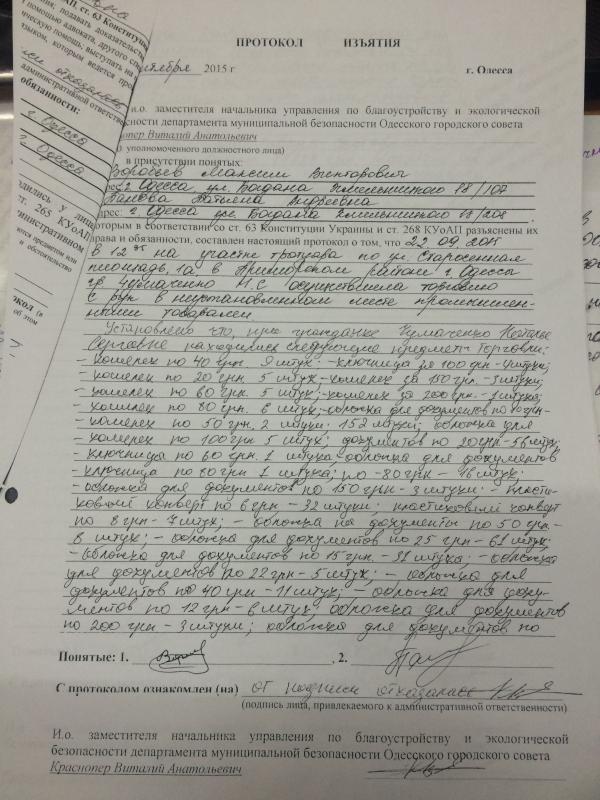 ПРОТОКОЛ ИЗЪЯТИЯ
2015 г г. Одесса
И.о. заместителя начальника управления по благоустройству и экологической
департамента муниципальной безопасности Одесского городского совета
Виталий Анатольевич
уполномоченного должностного лица)
в присутствии понятых:
Воробьев Максим Викторович
г. Одесса ул. Богдана Хмельницкого
Татьяна Андреевна
г. Одесса ул. Богдана Хмельницкого
которым в соответствии со ст. 63 Конституции Украины и ст. 268 КУоАП разъяснены их
права и обязанности, составлен настоящий протокол о том, что 22.09.2015
в 12 на участке тротуара по ул. Старосенная
площадь, 1а в Приморском районе г. Одессы
гр. Чумаченко Н.С. осуществила торговлю
с рук в неустановленном месте промышлен-
ными товарами
Установлено что, при гражданке Чумаченко Наталье
Сергеевне находились следующие предметы торговли:
- кошелек по 40 грн 9 штук; - ключница за 100 грн - штуки;
- кошелек по 20 грн 5 штук - кошелек за 150 грн. - штуки;
- кошелек по 60 грн. 5 штук; - кошелек за 200 грн. - штука;
- кошелек по 80 грн. 6 штук; обложка для документов по грн-
- кошелек по 50 грн. 2 штуки. 152 штуки; обложка для
- кошелек по 100 грн 5 штук; документов по 20 грн - 56 штук;
- ключницы по 60 грн. 1 штука - обложка для документов
- ключница по 80 грн 1 штука; по - 80 грн - 16 штук;
- обложка для документов по 150 грн - 3 штуки; - пласти-
ковый конверт по 6 грн - 32 штуки; пластиковый конверт
по 8 грн - 7 штук; - обложка на документы по 50 грн. -
8 штук; - обложка для документов по 25 грн - 61 штук;
- обложка для документов по 15 грн. - 31 штука; - обложка
для документов по 22 грн - 5 штук; - обложка для
документов по 40 грн - 11 штук; - обложка для доку-
ментов по 12 грн - 6 штук, обложка для документов
по 200 грн - 3 штуки; обложка для документов по
Понятые: 1. , 2.
С протоколом ознакомлен (на) от подписи отказалась
(подпись лица, привлекаемого к административной ответственности)
И.о. заместителя начальника управления по благоустройству и экологической
безопасности департамента муниципальной безопасности Одесского городского совета
Краснопер Виталий Анатольевич